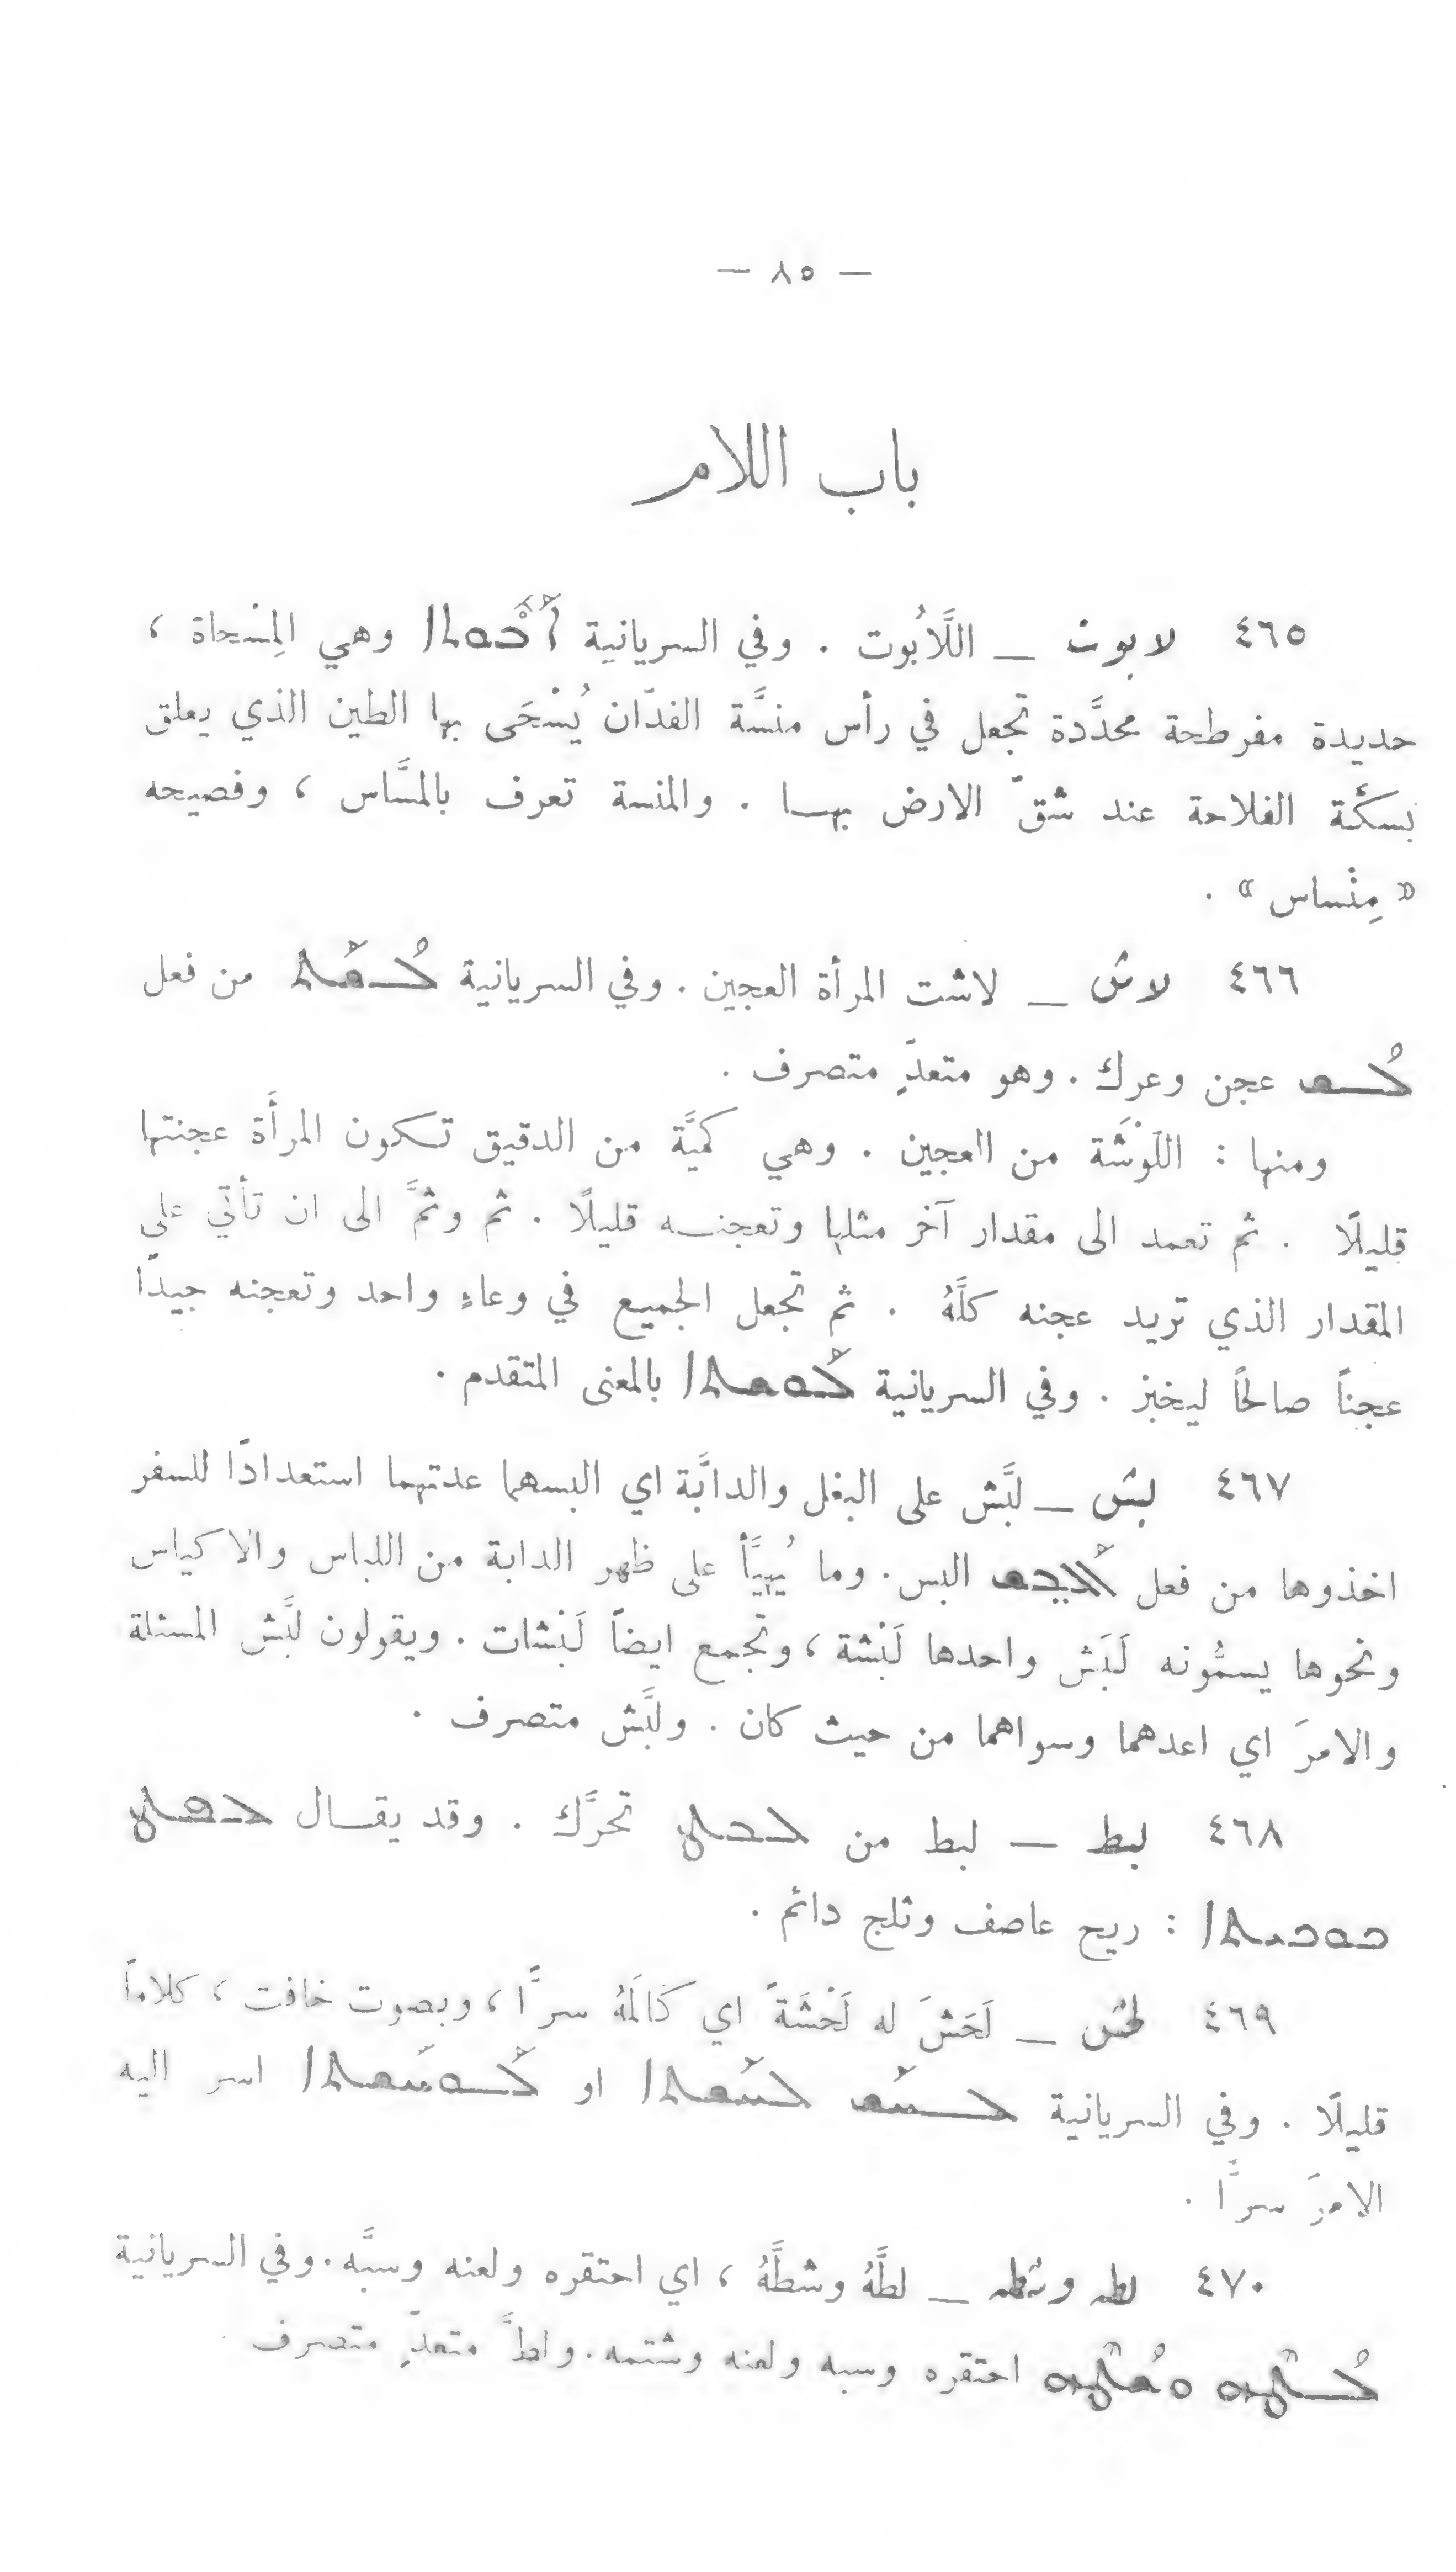 — ٨٥ —
باب اللام
٤٦٥ لابوت — اللَّابُوت . وفي السريانية وهي المِسْحاة ،
حديدة مفرطحة محدَّدة تجعل في رأس منسَّة الفدّان يُسْحَى بها الطين الذي يعلق
بسكَّة الفلاحة عند شقّ الارض بهــا . والمنسة تعرف بالمسَّاس ، وفصيحه
« مِنْساس » .
٤٦٦ لاش — لاشت المرأة العجين . وفي السريانية ܠܳܫܰܬ من فعل
ܠܳܫ عجن وعرك . وهو متعدٍّ متصرف .
ومنها : اللَوْشَة من العجين . وهي كميَّة من الدقيق تكون المرأَة عجنتها
قليلًا . ثم تعمد الى مقدار آخر مثلها وتعجنــه قليلًا . ثم وثمَّ الى ان تأتي على
المقدار الذي تريد عجنه كلَّهُ . ثم تجعل الجميع في وعاءٍ واحد وتعجنه جيدًا
عجناً صالحًا ليخبز . وفي السريانية ܠܰܘܫܬܐ بالمعنى المتقدم .
٤٦٧ لبش — لبَّش على البغل والدابَّة اي البسهما عدتهما استعدادًا للسفر
اخذوها من فعل ܐܰܠܒܫ البس . وما يُهيَّأ على ظهر الدابة من اللباس والاكياس
ونحوها يسمُّونه لَبَش واحدها لَبْشة ، وتجمع ايضاً لَبْشات . ويقولون لبَّش المسئلة
والامرَ اي اعدهما وسواهما من حيث كان . ولبَّش متصرف .
٤٦٨ لبط — لبط من ܠܒܛ تحرَّك . وقد يقــال
: ريح عاصف وثلج دائم .
٤٦٩ لحش — لَحَشَ له لَحْشَةً اي كَالَمَهُ سرًّا ، وبصوت خافت ، كلاماً
قليلًا . وفي السريانية ܠܚܰܫ ܠܚܰܫܬܐ او ܠܰܘܚܰܫܬܐ اسر اليه
الامرَ سرًّا .
٤٧٠ لطه وشطه — لطَّهُ وشطَّهُ ، اي احتقره ولعنه وسبَّه . وفي السريانية
ܠܳܛܶܗ ܘܫܳܛܶܗ احتقره وسبه ولعنه وشتمه . ولطَّ متعدٍّ متصرف .